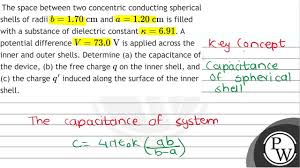 The space between two concentric conducting spherical
shells of radii b = 1.70 cm and a = 1.20 cm is filled
with a substance of dielectric constant κ = 6.91. A
potential difference V = 73.0 V is applied across the
inner and outer shells. Determine (a) the capacitance of
the device, (b) the free charge q on the inner shell, and
(c) the charge q′ induced along the surface of the inner
shell.
Key Concept
Capacitance
of spherical
shell
The capacitance of system
C = 4πε₀k (ab/(b-a))
PW